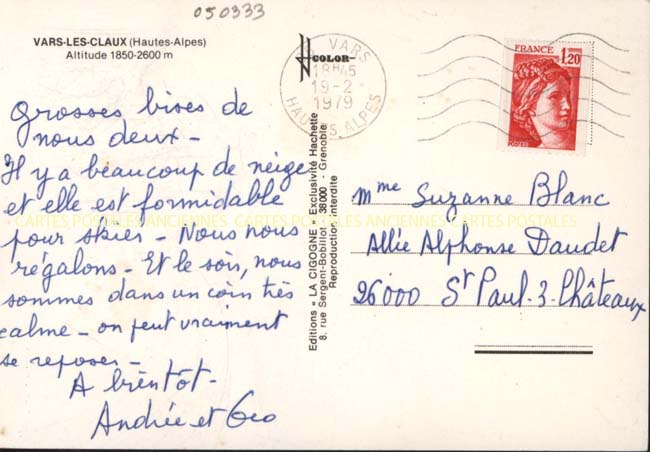 050333
VARS-LES-CLAUX (Hautes-Alpes)
Altitude 1850-2600 m
COLOR
VARS
18H45
19-2
1979
HAUTES ALPES
FRANCE
1,20
Grosses bises de
nous deux -
Il y a beaucoup de neige
et elle est formidable
pour skier - Nous nous
régalons - Et le soir, nous
sommes dans un coin très
calme - on peut vraiment
se reposer -
A bientot -
Andrée et Geo
Editions « LA CIGOGNE » - Exclusivité Hachette
8, rue Sergent-Bobillot - 38000 - Grenoble
Reproduction interdite
Mme Suzanne Blanc
Allée Alphonse Daudet
26000 St Paul-3-Châteaux
CARTES POSTALES ANCIENNES CARTES POSTALES ANCIENNES CARTES POSTALES